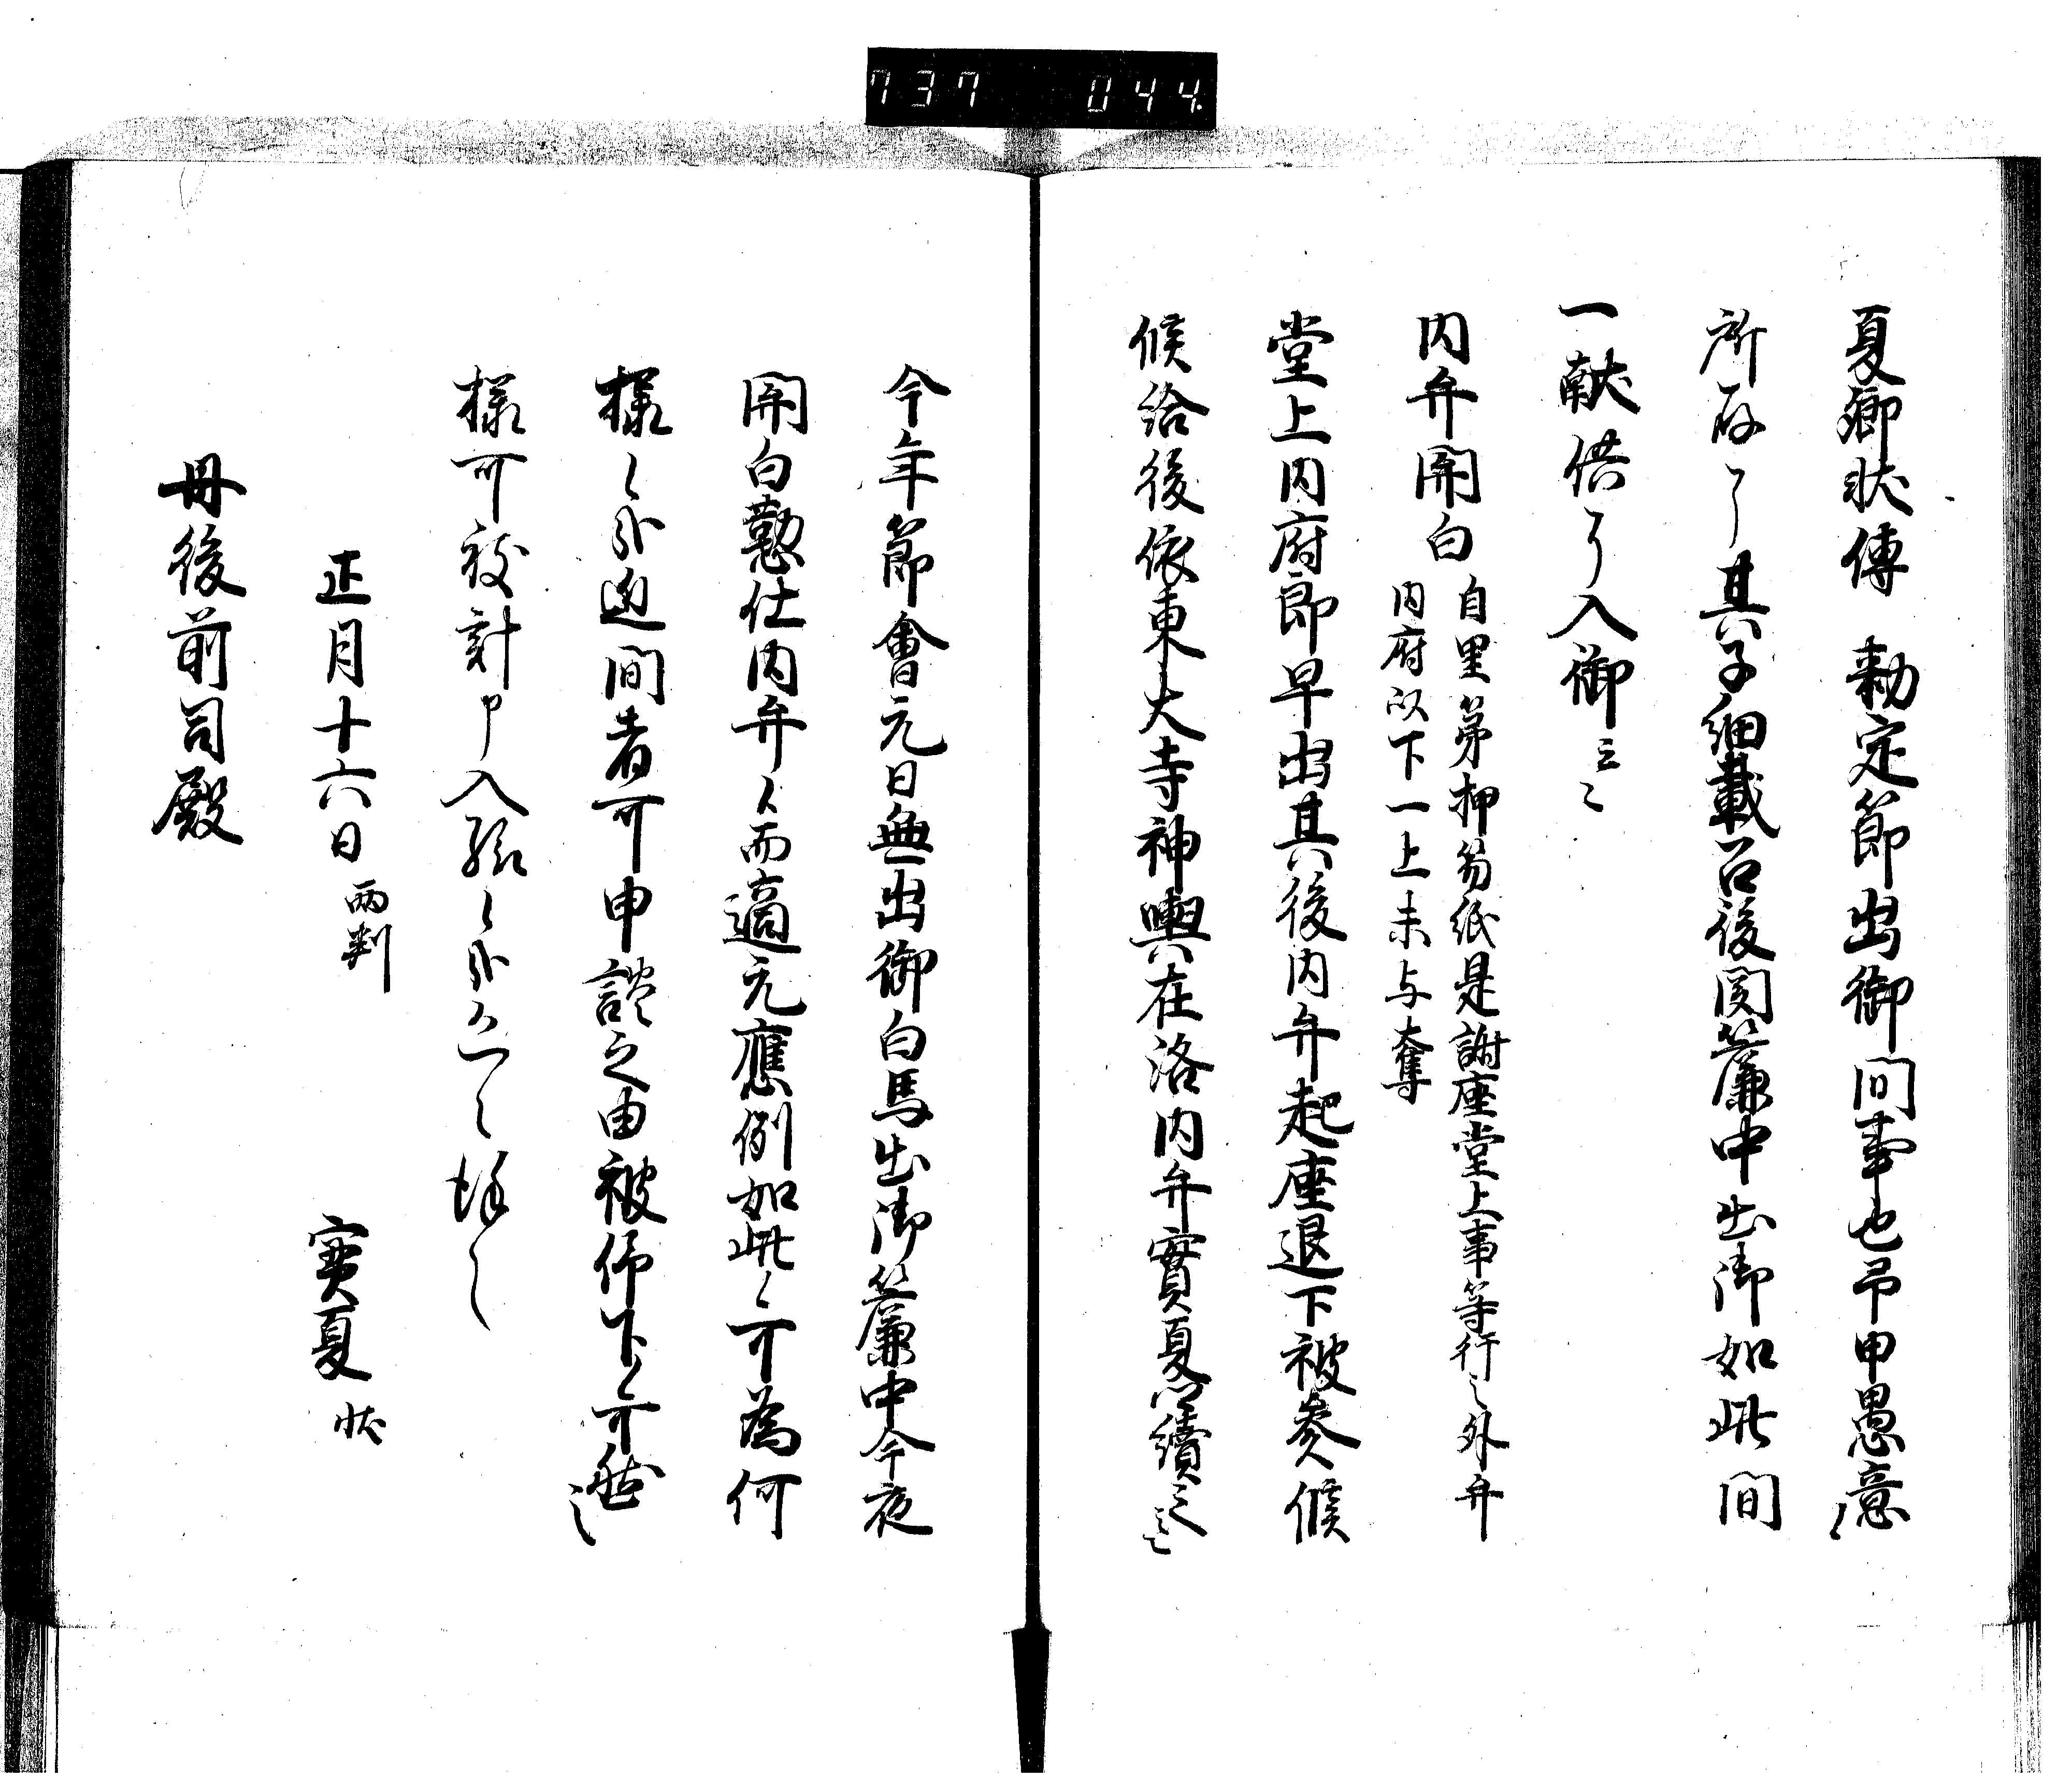 737 044
夏卿状傳 勅定節出御間事也即申愚意
所存了其子細載右後聞簾中出御如此間
一献供了入御云々
内弁関白
自里第押笏紙是謝座堂上事等行之外弁
内府以下一上未与奪
堂上内府即早出其後内弁起座退下被参候
候給後依東大寺神輿在洛内弁實夏公續之云々
今年節會元日無出御白馬出御簾中今夜
関白懃仕内弁候而適元應例如此候可為何
様候哉迫間者可申談之由被仰下候可然
様可被計申入給候哉
正月十六日 両判
實夏状
丹後前司殿